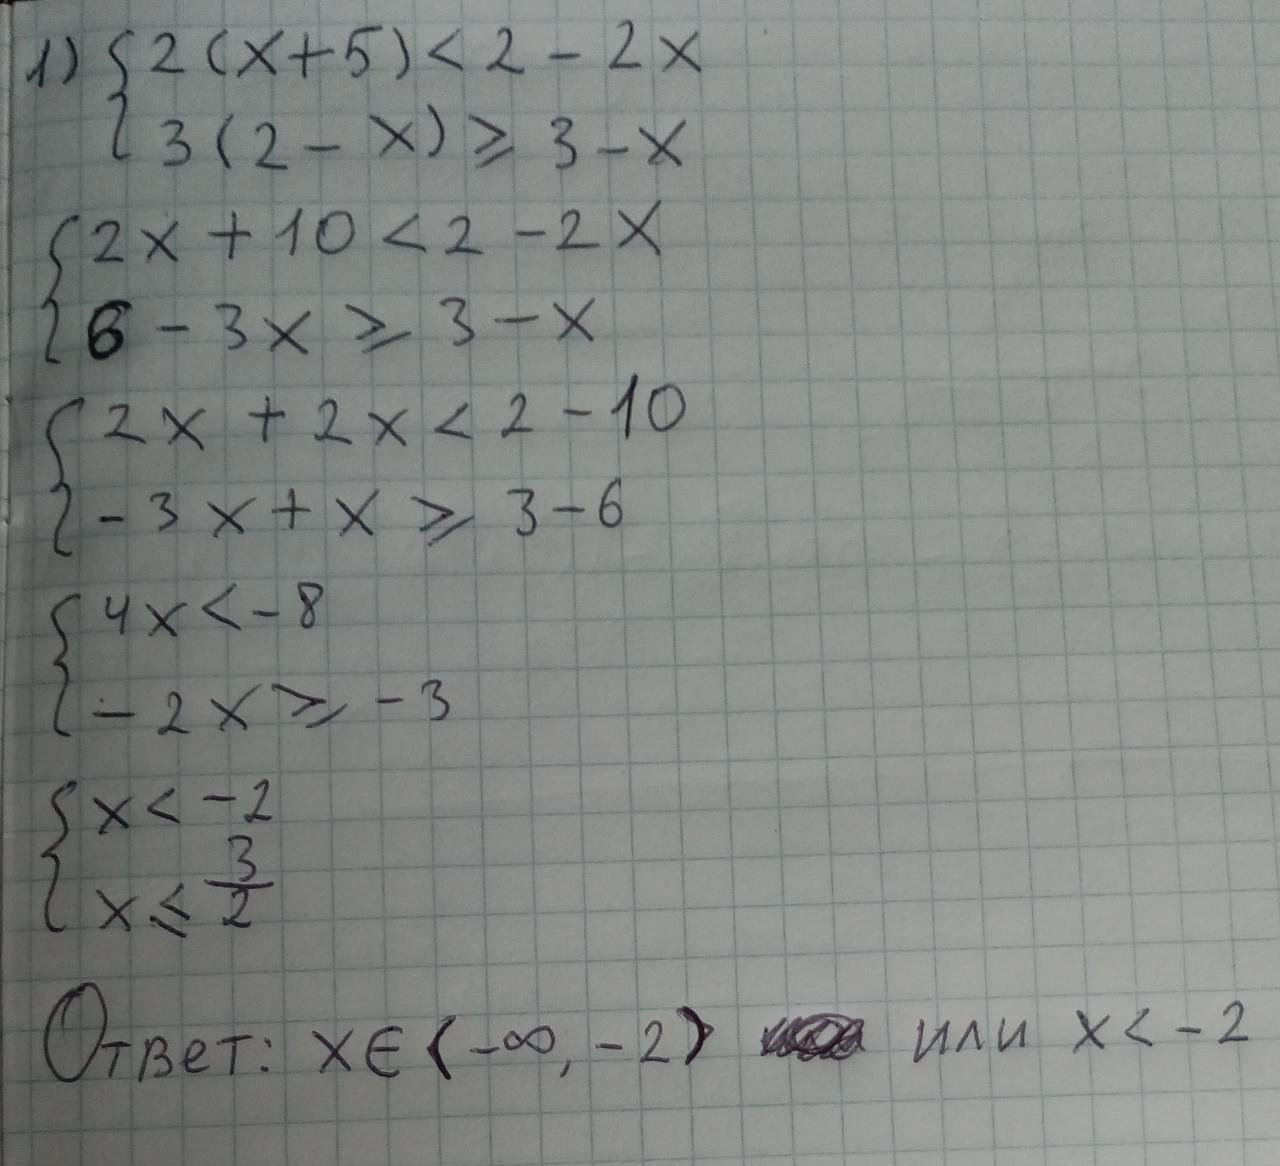 1) { 2(x+5) < 2 - 2x
3(2 - x) ≥ 3 - x
{ 2x + 10 < 2 - 2x
6 - 3x ≥ 3 - x
{ 2x + 2x < 2 - 10
- 3x + x ≥ 3 - 6
{ 4x < - 8
- 2x ≥ - 3
{ x < - 2
x ≤ 3/2
Ответ: x ∈ (-∞, -2) или x < - 2